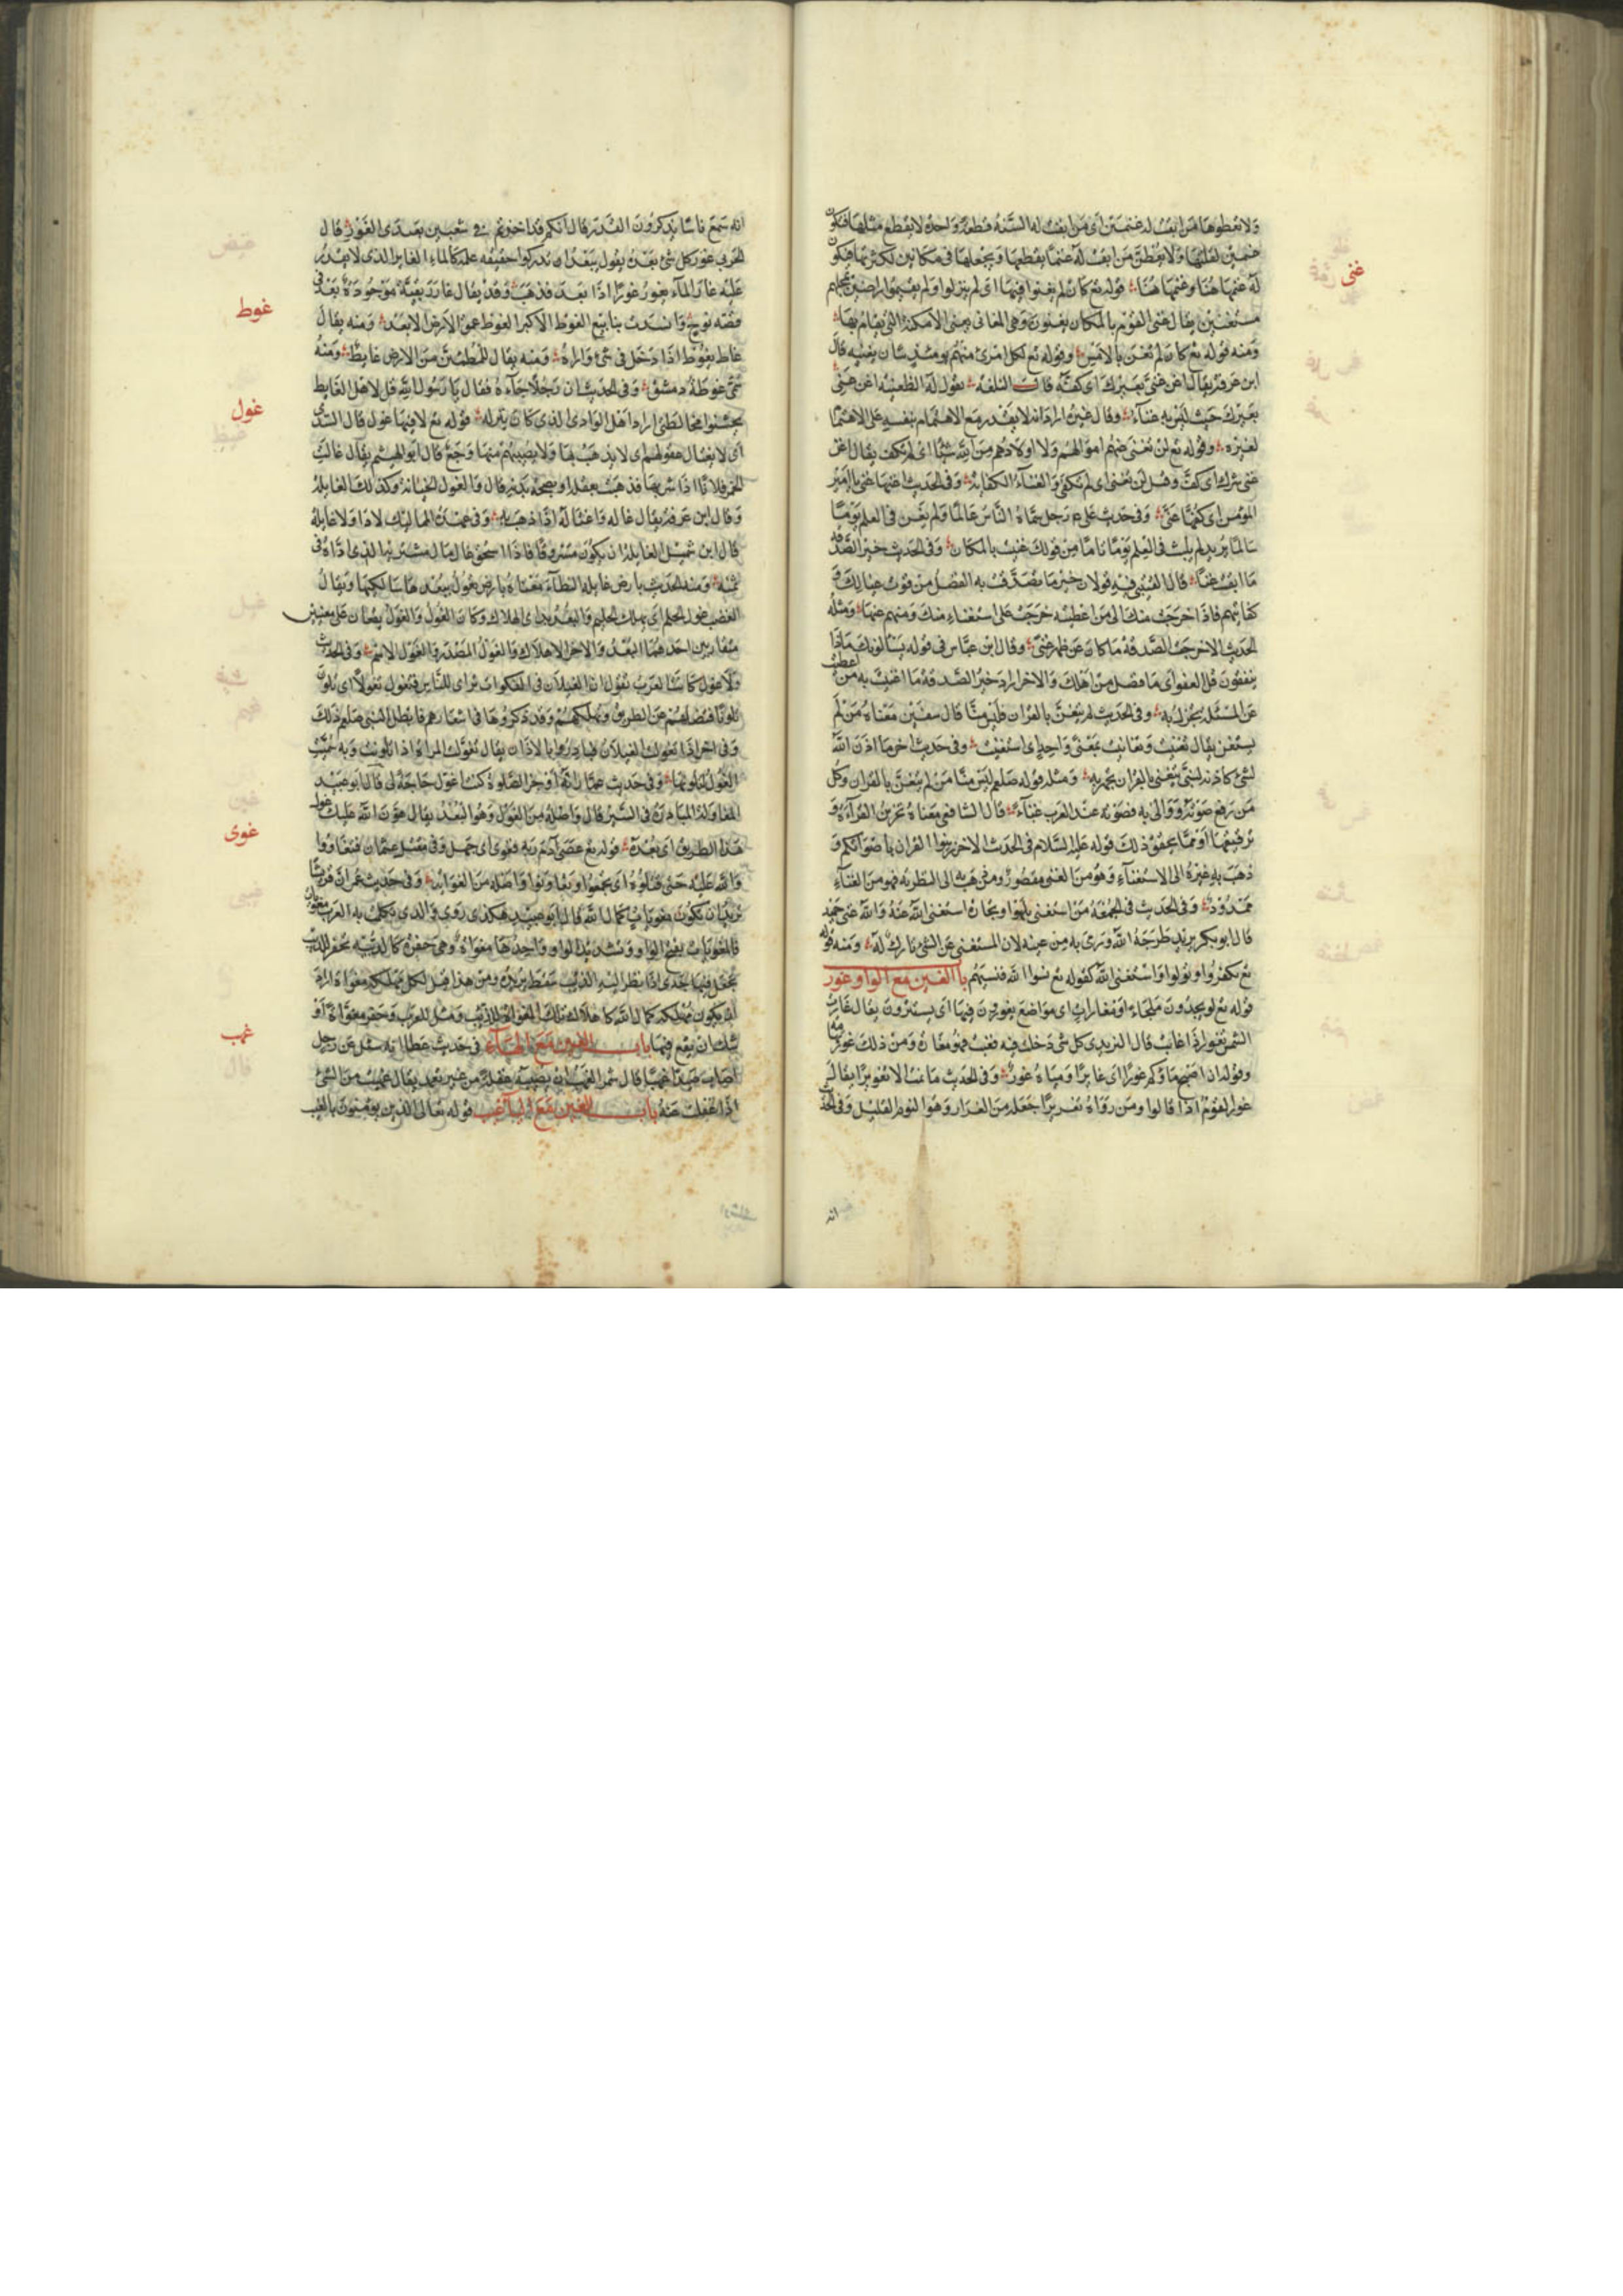 غنى
ولا تعطوها من ابقت له غنمين اى من ابقت له السنة قطعة واحدة لا يقطع مثلها فتكون
غنمين لقلتها ولا يعطى من ابقت له غنما يقطعها ويجعلها فى مكانين لكثرتها فتكون
له غنمها هنا وغنمها هنا قوله تع كان لم يغنوا فيها اى لم ينزلوا ولم يقيموا راضين بمحلهم
مستغنين يقال غنى القوم بالمكان يغنون وهى المغانى يعنى الامكنة التى يقام بها
ومنه قوله تع كان لم تغن بالامس وقوله تع لكل امرئ منهم يومئذ شان يغنيه قال
ابن عرفة يقال اغن عنى بعيرك اى كفه قالت
بعيرك حيث ليس به غناء وقال غيره اراد انه لا يقدر مع الاهتمام بنفسه على الاهتمام
لغيره وقوله تع لن تغنى عنهم اموالهم ولا اولادهم من الله شيئا اى لم تكف يقال اغن
عنى شرك اى كف وقيل لن تغنى اى لم تكفى والغناء الكفاية وفى الحديث اغنها عنى يا امير
المؤمنين اى كفها عنى وفى حديث على ع رجل سماه الناس عالما ولم يغن فى العلم يوما
سالما يريد لم يلبث فى العلم يوما تاما من قولك غنيت بالمكان وفى الحديث خير الصدقة
ما ابقت غنا قال القتيبى فيه قولان خير ما تصدقت به الفضل من قوت عيالك و
كفايتهم فاذا خرجت منك الى من اعطيته خرجت على استغناء منك ومنهم عنها ومثله
الحديث الاخر خير الصدقة ما كان عن ظهر غنى وقال ابن عباس فى قوله يسئلونك ماذا
ينفقون قل العفو اى ما فضل من اهلك والاخر اراد خير الصدقة ما اغنيت به من اعطيت
عن المسئلة وفى الحديث لم يتغن بالقران فليس منا قال سفين معناه من لم
يستغن يقال تغنيت وتغانيت بمعنى واحد اى استغنيت وفى حديث اخر ما اذن الله
لشئ كاذنه لنبى يتغنى بالقران يجهر به ومثله قوله صلعم ليس منا من لم يتغن بالقران وكل
من رفع صوته ووالى به فصوته عند العرب غناء قال الشافعى معناه تحزين القراءة و
ترقيقها ومما يحقق ذلك قوله عليه السلام فى الحديث الاخر زينوا القران باصواتكم و
ذهب به غيره الى الاستغناء وهو من الغنى مقصور ومن ذهب به الى التطريب فهو من الغناء
ممدود وفى الحديث فى الجمعة من استغنى بلهو او تجارة استغنى الله عنه والله غنى حميد
قال ابو بكر يريد طرحه الله ورمى به من عينه لان المستغنى عن الشئ تارك له ومنه قوله
تع فكفروا وتولوا واستغنى الله كقوله تع نسوا الله فنسيهم باب الغين مع الواو غور
قوله تع لو يجدون ملجاء او مغارات اى مواضع يغورون فيها اى يستترون يقال غارت
الشمس تغور اذا غابت قال اليزيدى كل شئ دخلت فيه فغبت فهو مغارة ومن ذلك غور تهامة
وقوله ان اصبح ماؤكم غورا اى غايرا ومياه غور وفى الحديث ما نمت الا تغويرا يقال
غور القوم اذا قالوا ومن رواه تغريرا جعله من الغرار وهو النوم القليل وفى الحديث
انه
انه سمع ناسا يذكرون القدر فقال انكم قد اخذتم فى شعبين بعيدى الغور قال
الحربى غور كل شئ بعده يقول يبعد ان تدركوا حقيقة علمه كالماء الغاير الذى لا يقدر
عليه غار الماء يغور غورا اذا بعد فذهب
غوط
قصة نوح وانسدت ينابيع الغوط الاكبر الغوط عمق الارض الابعد ومنه يقال
غاط يغوط اذا دخل فى شئ واراه ومنه يقال للمطمئن من الارض غايط ومنه
سمى غوطة دمشق وفى الحديث ان رجلا جاءه فقال يا رسول الله قل لاهل الغايط
غول
يحسنوا مخالطتى اراد اهل الوادى الذى كان ينزله قوله تع لا فيها غول قال السدى
اى لا يغتال عقولهم اى لا يذهب بها ولا يصيبهم منها وجع قال ابو الهيثم يقال غالت
الخمر فلانا اذا شربها فذهبت بعقله او بصحة بدنه قال والغول الخيانة وكذلك الغايلة
وقال ابن عرفة يقال غاله واغتاله اذا ذهب به وفى عهدة المماليك لا داء ولا غايلة
قال ابن شميل الغايلة ان يكون مسروقا فاذا استحق غال مال مشتريه الذى اداه فى
ثمنه ومنه الحديث بارض غايلة النطاء معناه بارض تغول ببعدها سالكيها ويقال
الغضب غول الحلم اى يهلك الحلم والبعد يريد اى اهلاك وكان الغول والغول يضعان على معنيين
متقاربين احدهما البعد والاخر الاهلاك والغول المصدر والغول الاسم وفى الحديث
ولا غول كانت العرب تقول ان الغيلان فى الفلوات تراى للناس فتغول تغولا اى تلون
تلونا فتضلهم عن الطريق وتهلكهم وقد ذكروها فى اشعارهم فابطل النبى صلعم ذلك
وفى اخر اذا تغولت الغيلان فبادروا بالاذان يقال تغولت المراة اذا تلونت وبه سميت
الغول لتلونها وفى حديث عمار انه اوجز الصلوة كنت اغاول حاجة لى قال ابو عبيد
المغاولة المبادرة فى السير قال واصله من الغول وهو البعد يقال هون الله عليك غول
غوى
هذا الطريق اى بعده قوله تع عصى ادم ربه فغوى اى جهل وفى مقتل عثمان فتغاووا
والله عليه حتى قتلوه اى تجمعوا وتعاونوا واصله من الغواية وفى حديث عمر ان قريشا
تريد ان تكون مغويات لمال الله قال ابو عبيد هكذى روى والذى تكلمت به العرب مغويات
فالمغويات بفتح الواو وتشديد الواو وواحدتها مغواة وهى حفرة كالزبية تحفر للذئب
يجعل فيها جدى اذا نظر اليه الذئب سقط يريده ومن هذا قيل لكل مهلكة مغواة اراد
غهب
شك ان يقع فيها باب الغين مع الهاء فى حديث عطا انه سئل عن رجل
اصاب صيدا غهبا قال شمر الغهب ان يصيبه غفلة من غير تعمد يقال غهبت من الشئ
اذا غفلت عنه باب الغين مع الياء غيب قوله تعالى الذين يؤمنون بالغيب